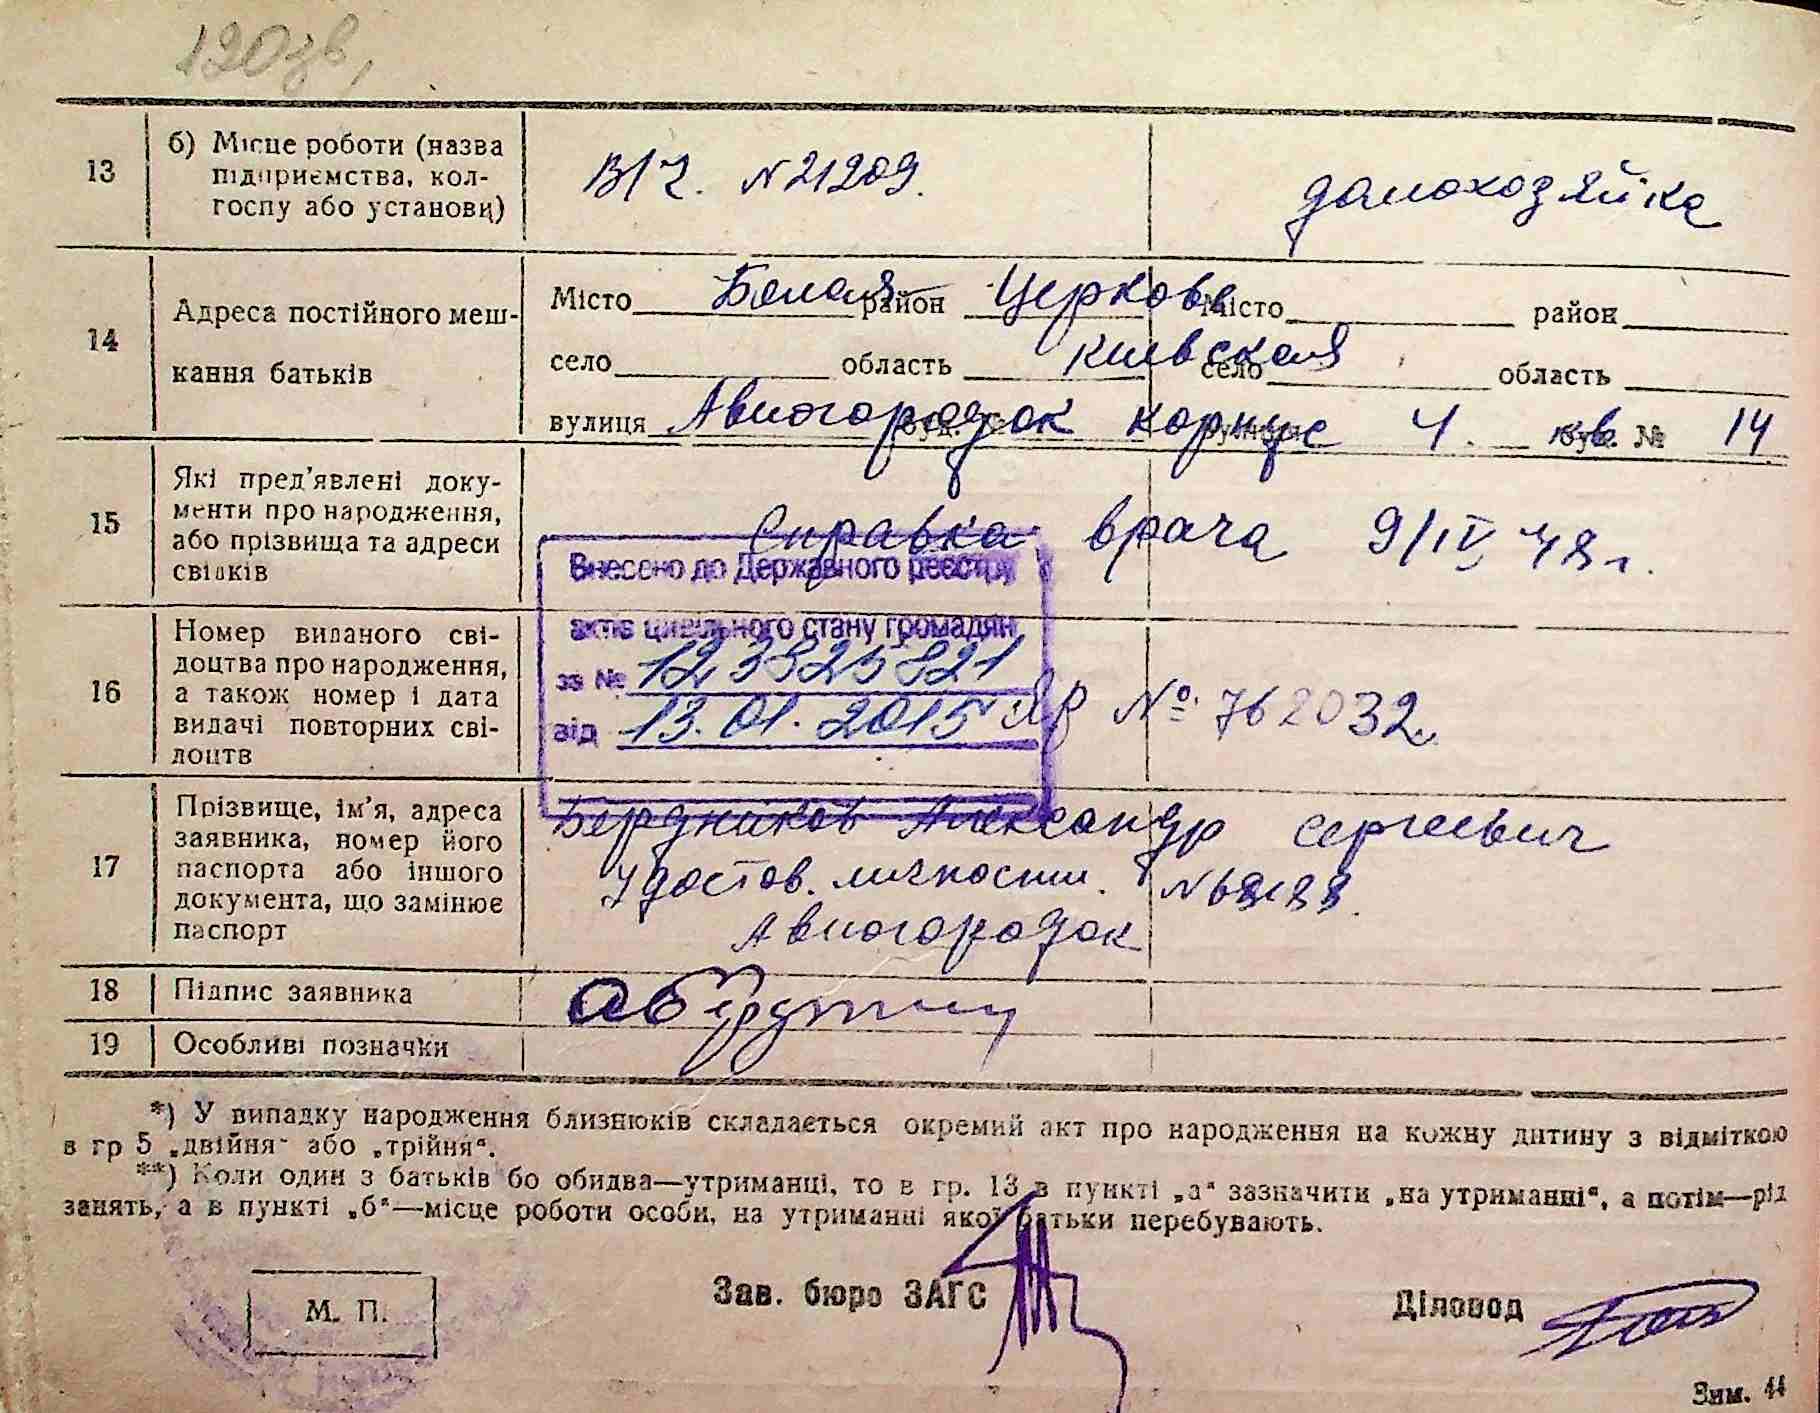 120зв,
13 б) Місце роботи (назва
підприємства, кол-
госпу або установи)
В/Ч. N 21209.
домохозяйка
14 Адреса постійного меш-
кання батьків
Місто Белая район Церковь Місто район
село область Киевская село область
вулиця Авиогородок корпус 4. кв. № 14
15 Які пред'явлені доку-
менти про народження,
або прізвища та адреси
свідків
Справка врача 9/IV 48 г.
Внесено до Державного реєстру
актів цивільного стану громадян
за № 12382582 1
від 13.01.2015
16 Номер виданого сві-
доцтва про народження,
а також номер і дата
видачі повторних сві-
доцтв
№ 762032
17 Прізвище, ім'я, адреса
заявника, номер його
паспорта або іншого
документа, що замінює
паспорт
Бердников Александр Сергеевич
Удостов. личности.
Авиогородок
18 Підпис заявника
19 Особливі позначки
*) У випадку народження близнюків складається окремий акт про народження на кожну дитину з відміткою
в гр 5 „двійня" або „трійня".
**) Коли один з батьків бо обидва—утриманці, то в гр. 13 в пункті „а" зазначити „на утриманні", а потім—рід
занять, а в пункті „б"—місце роботи особи, на утриманні якої батьки перебувають.
М. П.
Зав. бюро ЗАГС
Діловод
Зам. 44